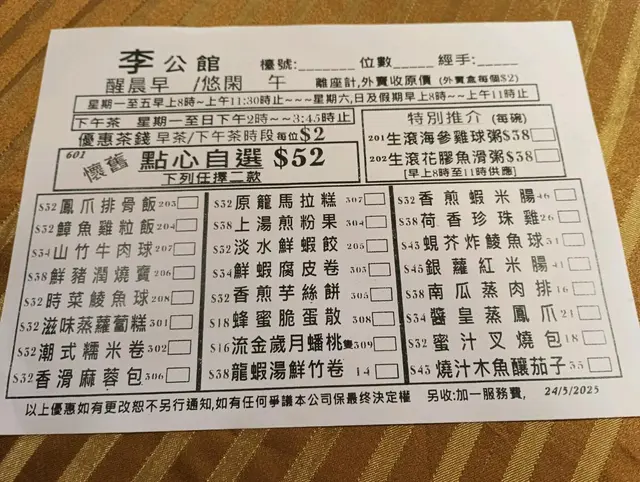 李公館 檯號:______ 位數_____ 經手:_____
醒晨早 /悠閑 午 離座計,外賣收原價 (外賣盒每個$2)
星期一至五早上8時~上午11:30時止~~~星期六,日及假期早上8時~~上午11時止
下午茶 星期一至日下午2時~~3:45時止
優惠茶錢 早茶/下午茶時段每位$2
特別推介 (每碗)
201生滾海參雞球粥$38
202生滾花膠魚滑粥$38
[早上8時至11時供應]
601 懷舊 點心自選 $52
下列任擇二款
$32 鳳爪排骨飯 203
$32 鱆魚雞粒飯 204
$34 山竹牛肉球 207
$38 鮮豬潤燒賣 206
$32 時菜鯪魚球 208
$32 滋味蒸蘿蔔糕 301
$32 潮式糯米卷 302
$32 香滑麻蓉包 306
$32 原籠馬拉糕 307
$38 上湯煎粉果 304
$32 淡水鮮蝦餃 205
$34 鮮蝦腐皮卷 303
$32 香煎芋絲餅 305
$18 蜂蜜脆蛋散 308
$16 流金歲月蟠桃隻 309
$38 龍蝦湯鮮竹卷 14
$32 香煎蝦米腸 46
$38 荷香珍珠雞 26
$43 蜆芥炸鯪魚球 31
$45 銀蘿紅米腸 41
$38 南瓜蒸肉排 16
$34 醬皇蒸鳳爪 21
$32 蜜汁叉燒包 18
$43 燒汁木魚釀茄子 35
以上優惠如有更改恕不另行通知,如有任何爭議本公司保最終決定權 另收:加一服務費, 24/5/2025